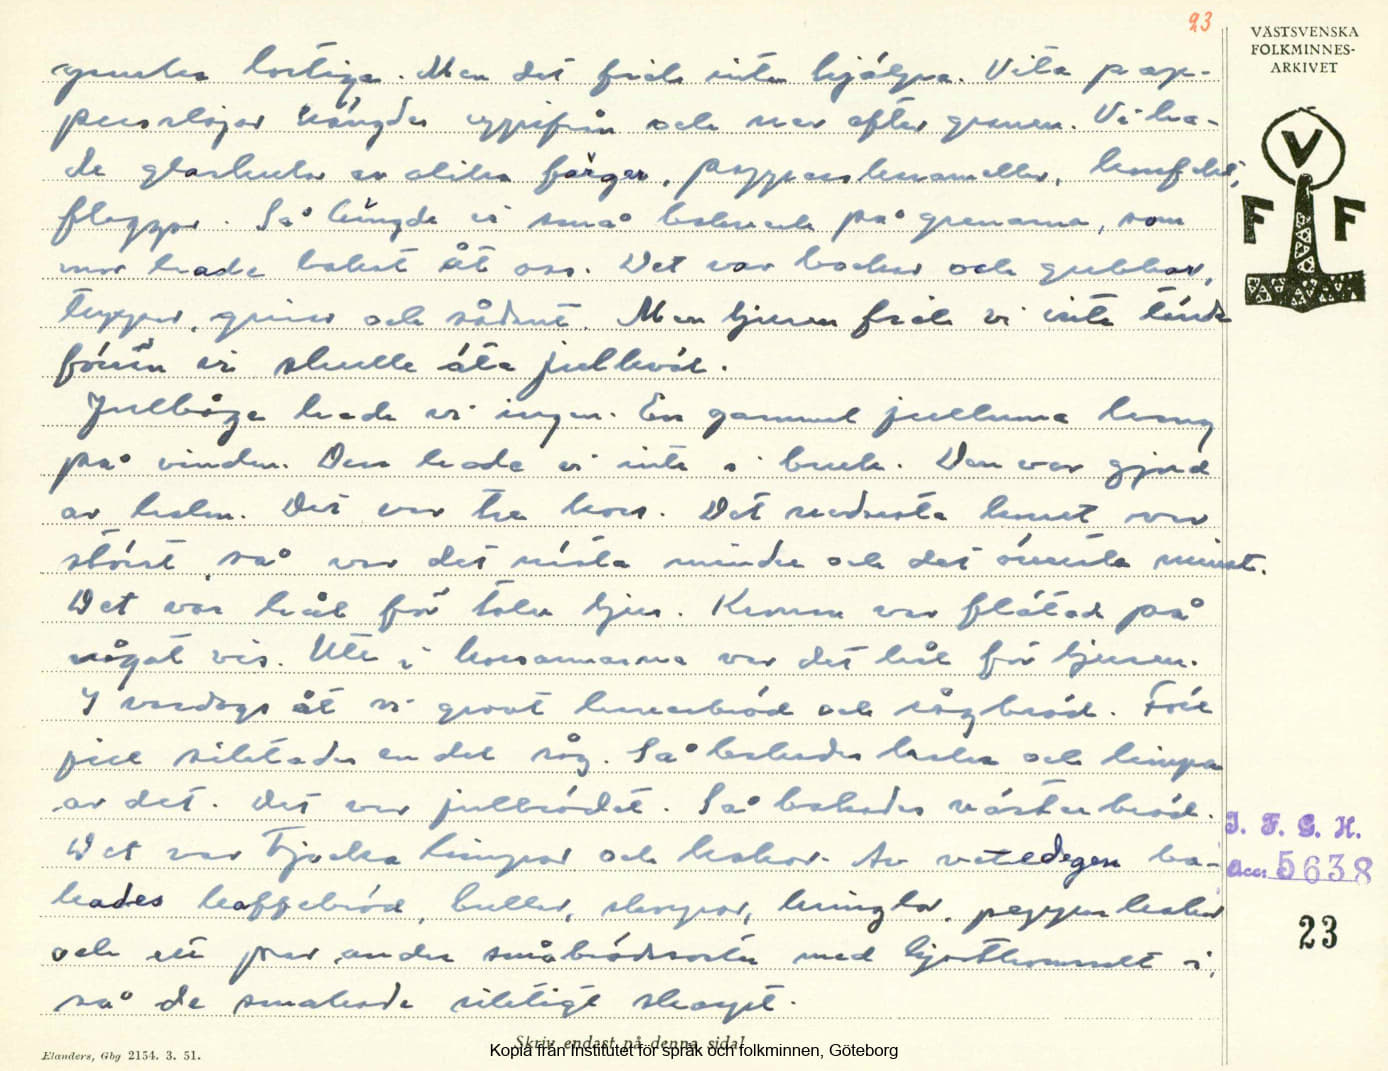 23
VÄSTSVENSKA
FOLKMINNES-
ARKIVET
V
F F
ganska lortiga. Men det fick inte hjälpa. Vita pap-
persslöjor hängdes uppifrån och ner efter granen. Vi ha-
de glaskulor av olika färger, papperskarameller, konfekt,
flaggor. Så hängde vi små bakverk på grenarna, som
mor hade bakat åt oss. Det var bockar och gubbar,
tuppar, grisar och sådant. Men ljusen fick vi inte tända
förrän vi skulle äta julkväl.
Julbåga hade vi ingen. En gammal julkrona hang
på vinden. Den hade vi inte i bruk. Den var gjord
av halm. Det var tre kors. Det nedersta korset var
störst, så var det nästa mindre och det översta minst.
Det var hål för tolv ljus. Kronan var flätad på
något vis. Ute i korsarmarna var det hål för ljusen.
I vardags åt vi grovt havrebröd och rågbröd. Före
jul siktades en del råg. Så bakades kakor och limpa
av det. Det var julbrödet. Så bakades vörtebröd.
Det var tjocka limpor och kakor. Av vetedegen ba-
kades kaffebröd, bullar, skorpor, kringlor, pepparkakor
och ett par andra småbrödssorter med hjorthornssalt i,
så de smakade riktigt skarpt.
I. F. G. H.
Acc. 5638
23
Skriv endast på denna sida!
Elanders, Gbg 2154. 3. 51.
Kopia från Institutet för språk och folkminnen, Göteborg